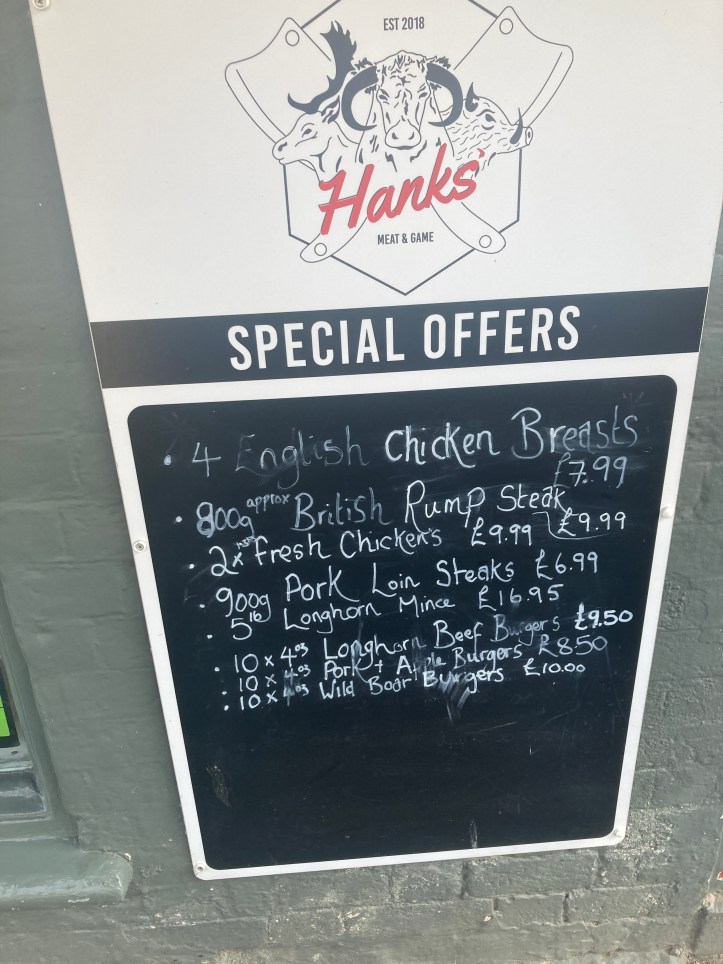 EST 2018
Hanks'
MEAT & GAME
SPECIAL OFFERS
• 4 English Chicken Breasts
£7.99
• 800g approx British Rump Steak
£9.99
• 2x Fresh Chicken's £9.99
• 900g Pork Loin Steaks £6.99
• 5lb Longhorn Mince £16.95
• 10 x 4oz Longhorn Beef Burgers £9.50
• 10 x 4oz Pork + Apple Burgers £8.50
• 10 x 4oz Wild Boar Burgers £10.00